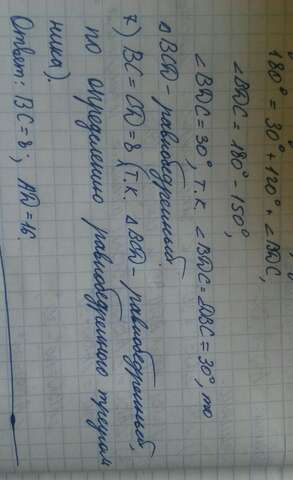 180° = 30° + 120° + ∠BDC,
∠BDC = 180° - 150°,
∠BDC = 30°, т.к. ∠BDC = ∠DBC = 30°, то
△BCD - равнобедренный.
7) BC = CD = 8 (т.к. △BCD - равнобедренный,
по определению равнобедренного треуголь
ника).
Ответ: BC = 8; AD = 16.